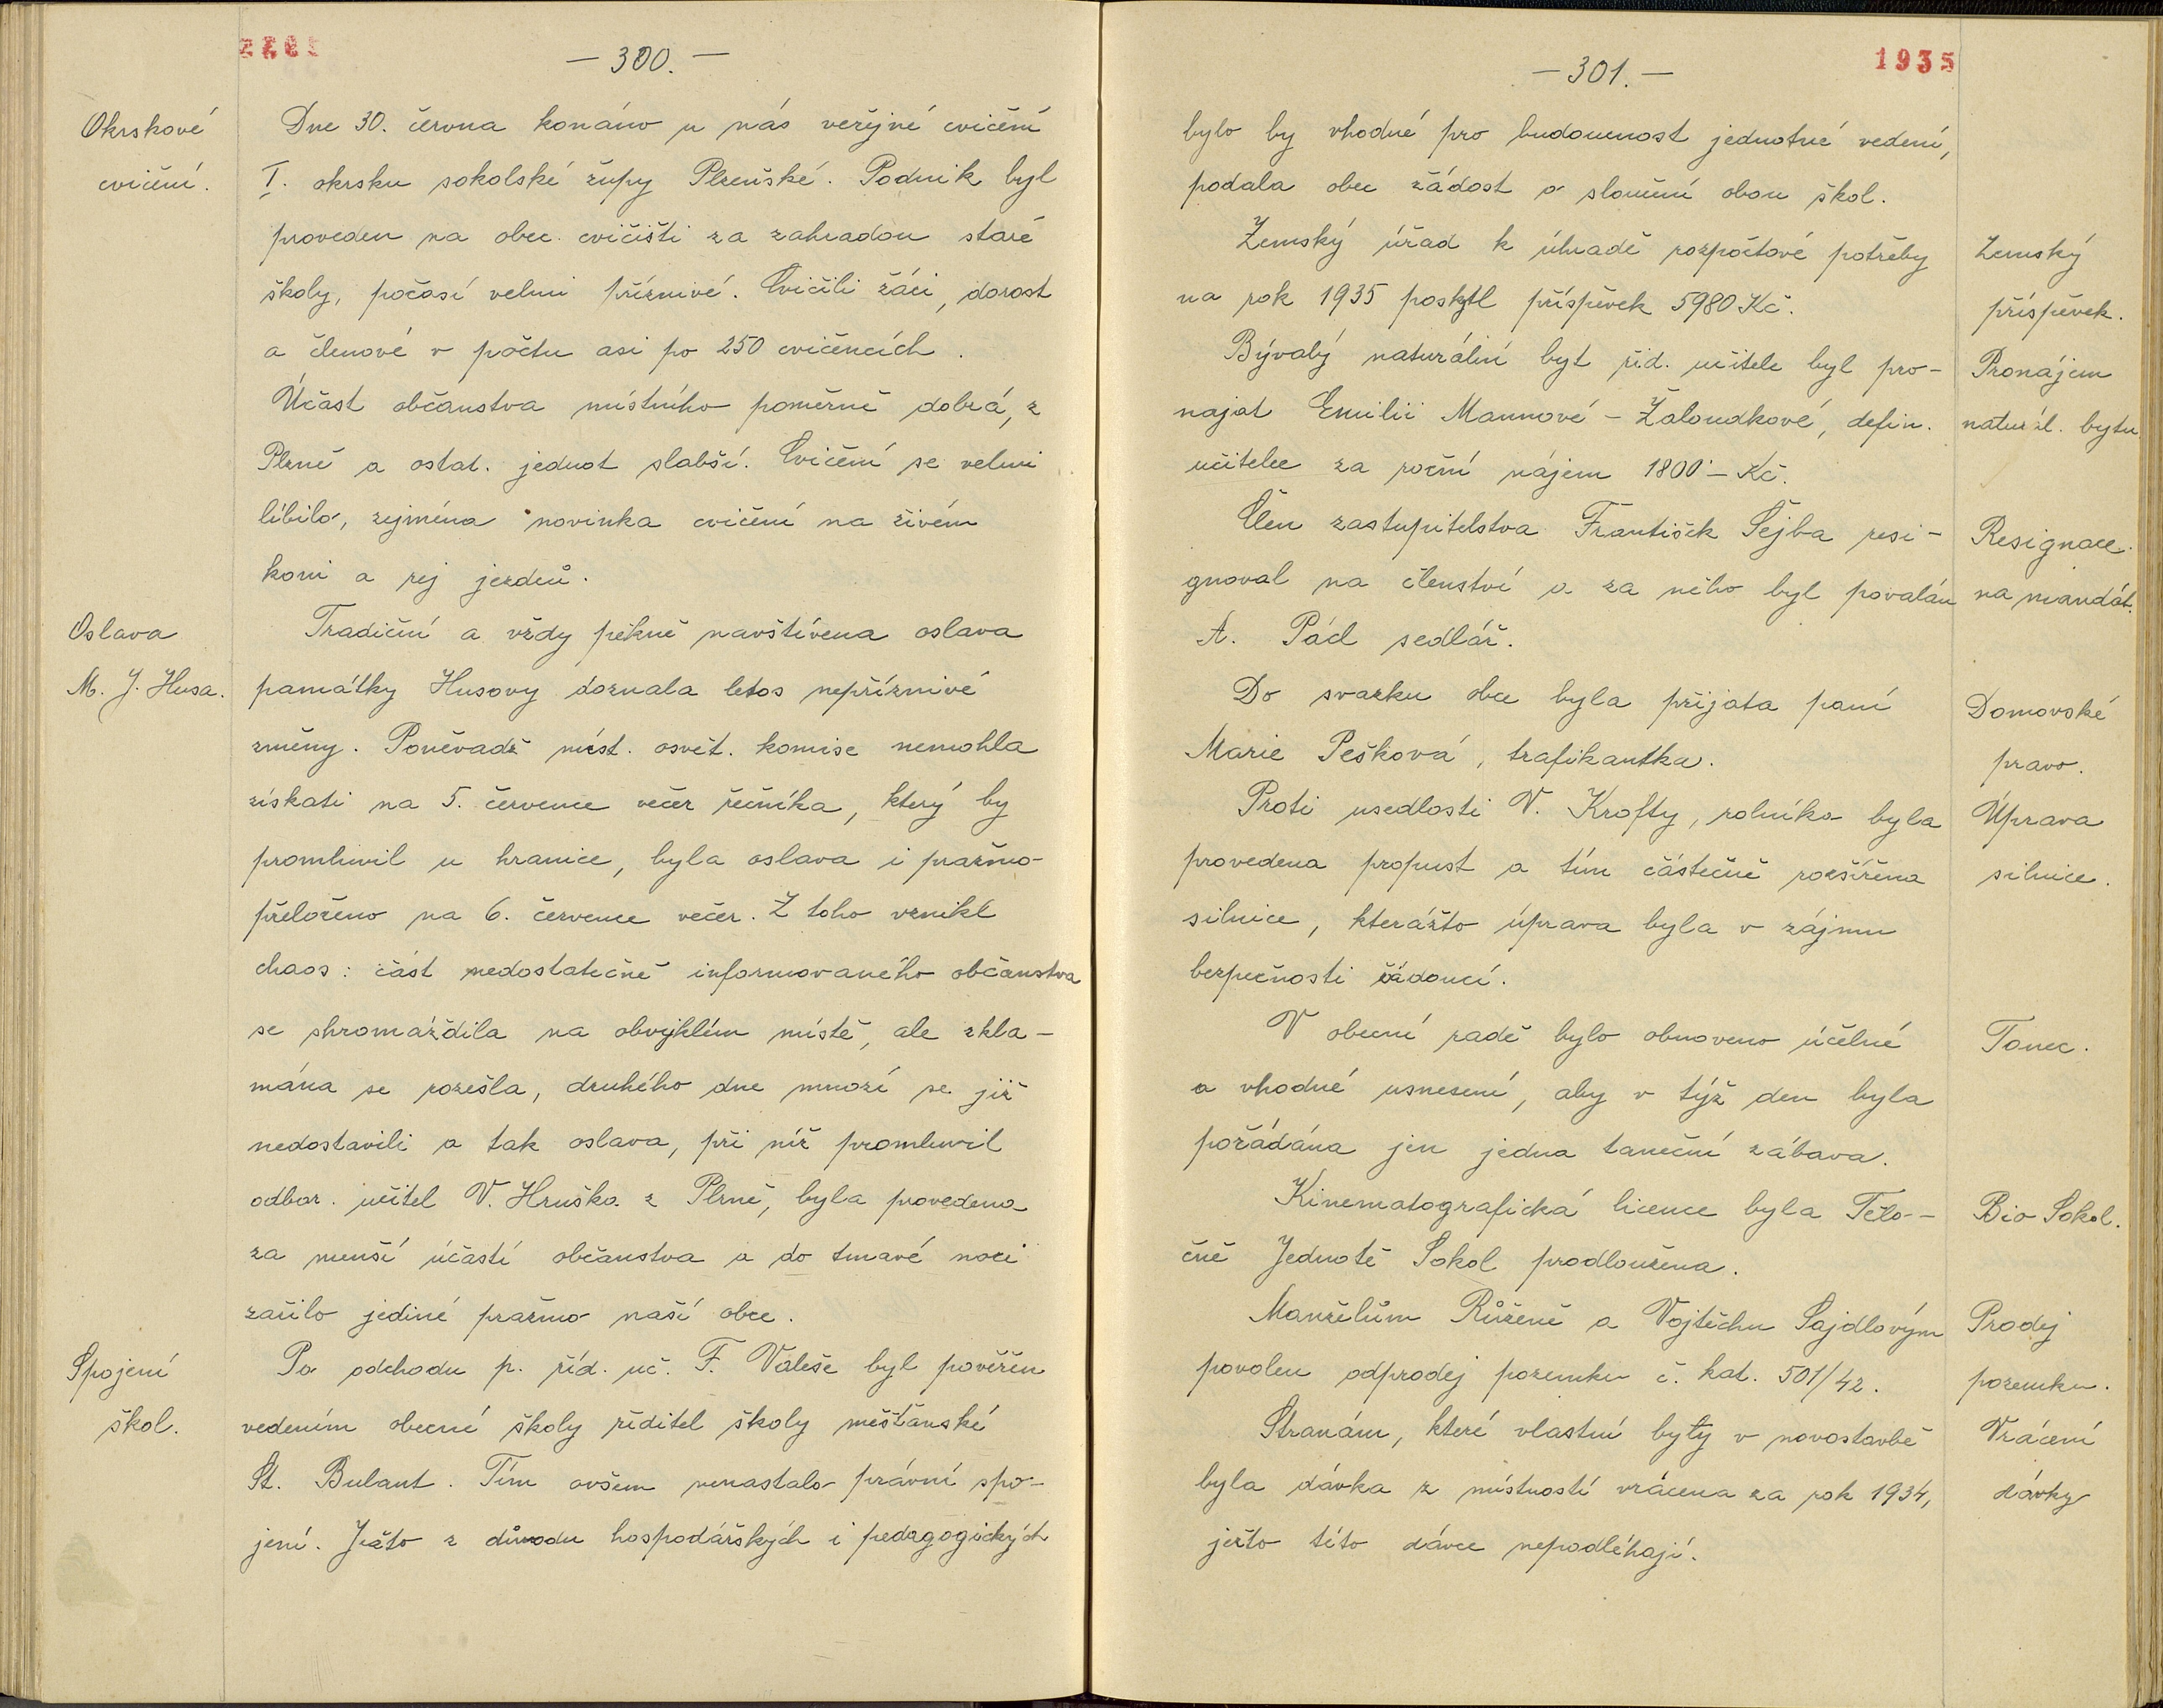 1935
— 300. —
Okrskové
cvičení.
Dne 30. června konáno u nás veřejné cvičení
I. okrsku sokolské župy Plzeňské. Podnik byl
proveden na obec. cvičišti za zahradou staré
školy, počasí velmi příznivé. Cvičili žáci, dorost
a členové v počtu asi po 250 cvičencích.
Účast občanstva místního poměrně dobrá, z
Plzně a ostat. jednot slabší. Cvičení se velmi
líbilo, zejména novinka cvičení na živém
koni a rej jezdců.
Oslava
M. J. Husa.
Tradiční a vždy pěkně navštívena oslava
památky Husovy doznala letos nepříznivé
změny. Poněvadž míst. osvět. komise nemohla
získati na 5. července večer řečníka, který by
promluvil u hranice, byla oslava i pražmo-
přeloženo na 6. července večer. Z toho vznikl
chaos: část nedostatečně informovaného občanstva
se shromáždila na obvyklém místě, ale zkla-
mána se rozešla, druhého dne mnozí se již
nedostavili a tak oslava, při níž promluvil
odbor. učitel V. Hruška z Plzně, byla provedena
za menší účasti občanstva a do tmavé noci
zářilo jediné pražmo naší obce.
Spojení
škol.
Po odchodu p. říd. uč. F. Valeše byl pověřen
vedením obecné školy ředitel školy měšťanské
St. Bulant. Tím ovšem nenastalo právní spo-
jení. Ježto z důvodu hospodářských i pedagogických
— 301. —
1935
bylo by vhodné pro budoucnost jednotné vedení,
podala obec žádost o sloučení obou škol.
Zemský úřad k úhradě rozpočtové potřeby
na rok 1935 poskytl příspěvek 5980 Kč.
Zemský
příspěvek.
Bývalý naturální byt říd. učitele byl pro-
najat Emilii Mannové - Žaloudkové, defin.
učitelce za roční nájem 1800·- Kč.
Pronájem
naturál. bytu
Člen zastupitelstva František Šejba resi-
gnoval na členství a za něho byl povolán
A. Pád sedlář.
Resignace
na mandát.
Do svazku obce byla přijata paní
Marie Pešková, trafikantka.
Domovské
pravo.
Proti usedlosti V. Krofty, rolníka byla
provedena propust a tím částečně rozšířena
silnice, kterážto úprava byla v zájmu
bezpečnosti žádoucí.
Úprava
silnice.
V obecní radě bylo obnoveno účelné
a vhodné usnesení, aby v týž den byla
pořádána jen jedna taneční zábava.
Tanec.
Kinematografická licence byla Tělo-
čně Jednotě Sokol prodloužena.
Bio Sokol.
Manželům Růženě a Vojtěchu Sajdlovým
povolen odprodej pozemku č. kat. 501/42.
Prodej
pozemku.
Stranám, které vlastní byty v novostavbě
byla dávka z místností vrácena za rok 1934,
ježto této dávce nepodléhají.
Vrácení
dávky